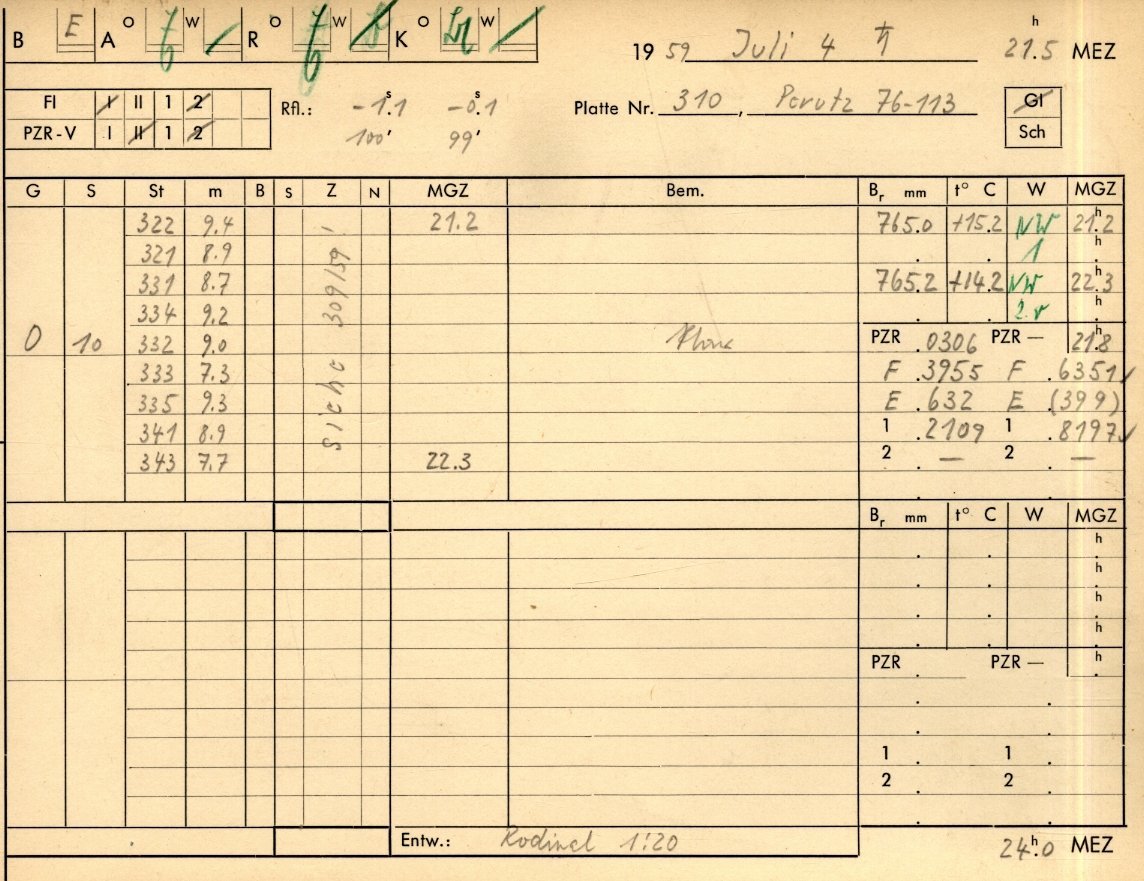 B E A O W R O W K O W
1959 Juli 4 ♄ 21.5 h MEZ
FI I II 1 2
PZR-V I II 1 2
Rfl.: -1.1 s -0.1 s
100' 99'
Platte Nr. 310, Perutz 76-113
Gl
Sch
G S St m B S Z N MGZ Bem. Br mm t° C W MGZ
322 9.4 21.2 765.0 +15.2 NW 21.2 h
321 8.9 1 h
331 8.7 765.2 +14.2 NW 22.3 h
334 9.2 2 h
0 10 332 9.0 PZR .0306 PZR — 21.8 h
333 7.3 F .3955 F .6351 ✓
335 9.3 E .632 E (399)
341 8.9 1 .2109 1 .8197 ✓
343 7.7 22.3 2 — 2 —
siehe 309/59!
Br mm t° C W MGZ
h
h
h
h
PZR PZR — h
1 1
2 2
Entw.: Rodinal 1:20
24.0 h MEZ